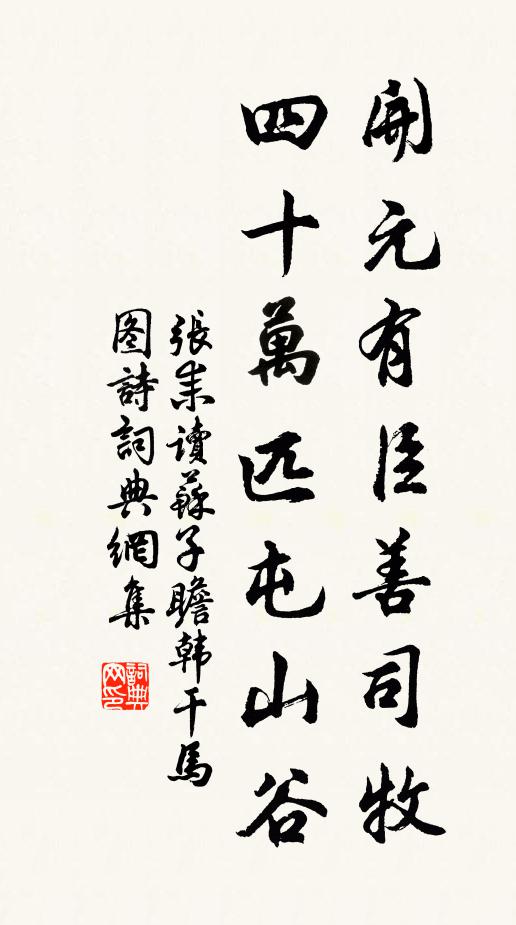 開元有臣善司牧
四十萬匹屯山谷
張耒讀蘇子瞻韩干馬
图詩詞典網集
詞典网印